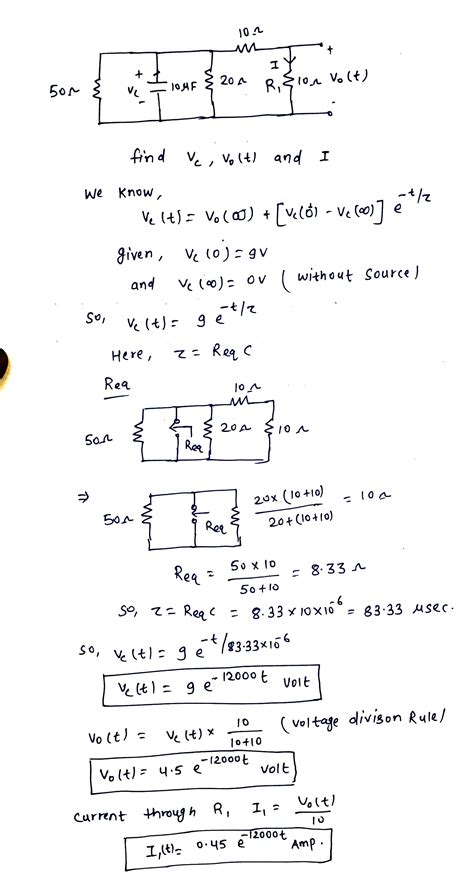 10Ω
50Ω + Vc - 10μF 20Ω I R₁ 10Ω + V₀(t) -
find Vc, V₀(t) and I
We know,
Vc(t) = V₀(∞) + [Vc(0⁺) - Vc(∞)] e^-t/τ
given, Vc(0) = 9V
and Vc(∞) = 0V (without source)
So, Vc(t) = 9 e^-t/τ
Here, τ = Req C
Req
10Ω
50Ω Req 20Ω 10Ω
⇒ 50Ω Req 20×(10+10)/20+(10+10) = 10Ω
Req = 50×10/50+10 = 8.33Ω
So, τ = Req C = 8.33×10×10^-6 = 83.33 μsec.
So, Vc(t) = 9 e^-t/83.33×10^-6
Vc(t) = 9 e^-12000t volt
V₀(t) = Vc(t) × 10/10+10 (voltage divison Rule)
V₀(t) = 4.5 e^-12000t volt
Current through R₁ I₁ = V₀(t)/10
I₁(t) = 0.45 e^-12000t Amp.